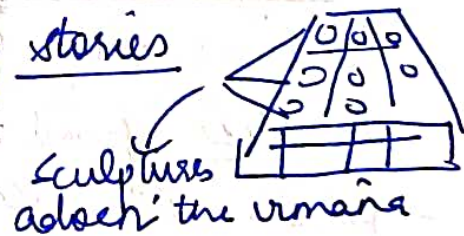 stories
sculptures
adorn the vimana